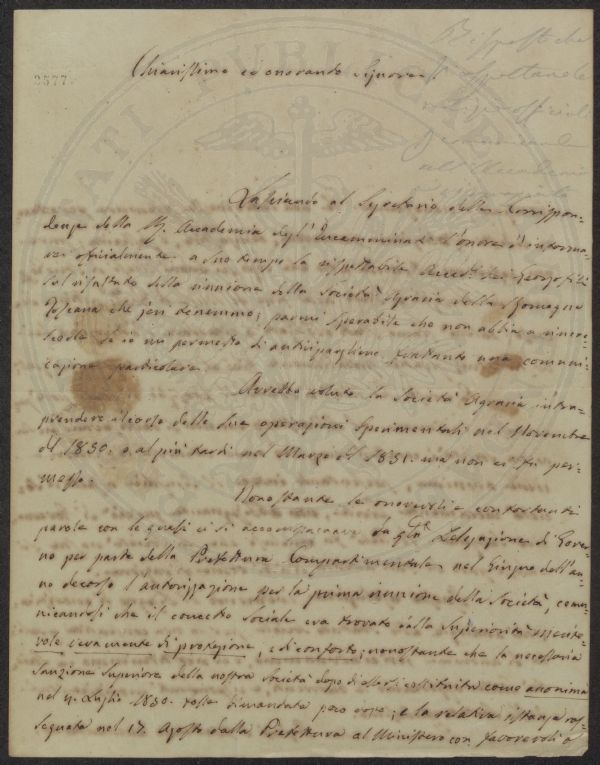 2577.
Chiarissimo ed onorando Signore.
Risposto che
si aspettano le
notizie officiali
per
all'Accademia
Lasciando al Segretario delle Corrispon-
denze della Accademia degl'Incamminati l'onore d'informa-
re officialmente a suo tempo la rispettabile Accad. dei Georgofili
sul risultato della riunione della Società Agraria della Romagna
Toscana che jeri tenemmo; parmi sperabile che non abbia a rincre-
scerle se io mi permetto di anticipargliene frattanto una comuni-
cazione particolare.
Avrebbe voluto la Società Agraria intra-
prendere il corso delle sue operazioni sperimentali nel Novembre
del 1850. o al più tardi nel Marzo del 1851. ma non ci fu per-
messo.
Nonostante le onorevoli e confortanti
parole con le quali ci si accompagnava da Delegazione di Gover-
no per parte della Prefettura Compartimentale nel Giugno dell'an-
no decorso l'autorizzazione per la prima riunione della Società, comu-
nicandosi che il concetto Sociale era trovato dalla Superiorità merite-
vole veramente di protezione, e di conforto; nonostante che la necessaria
sanzione Superiore della nostra Società dopo di essersi costituita come anonima
nel 4. Luglio 1850. fosse dimandata poco dopo; e la relativa istanza ras-
segnata nel 17. Agosto dalla Prefettura al Ministero con favorevoli